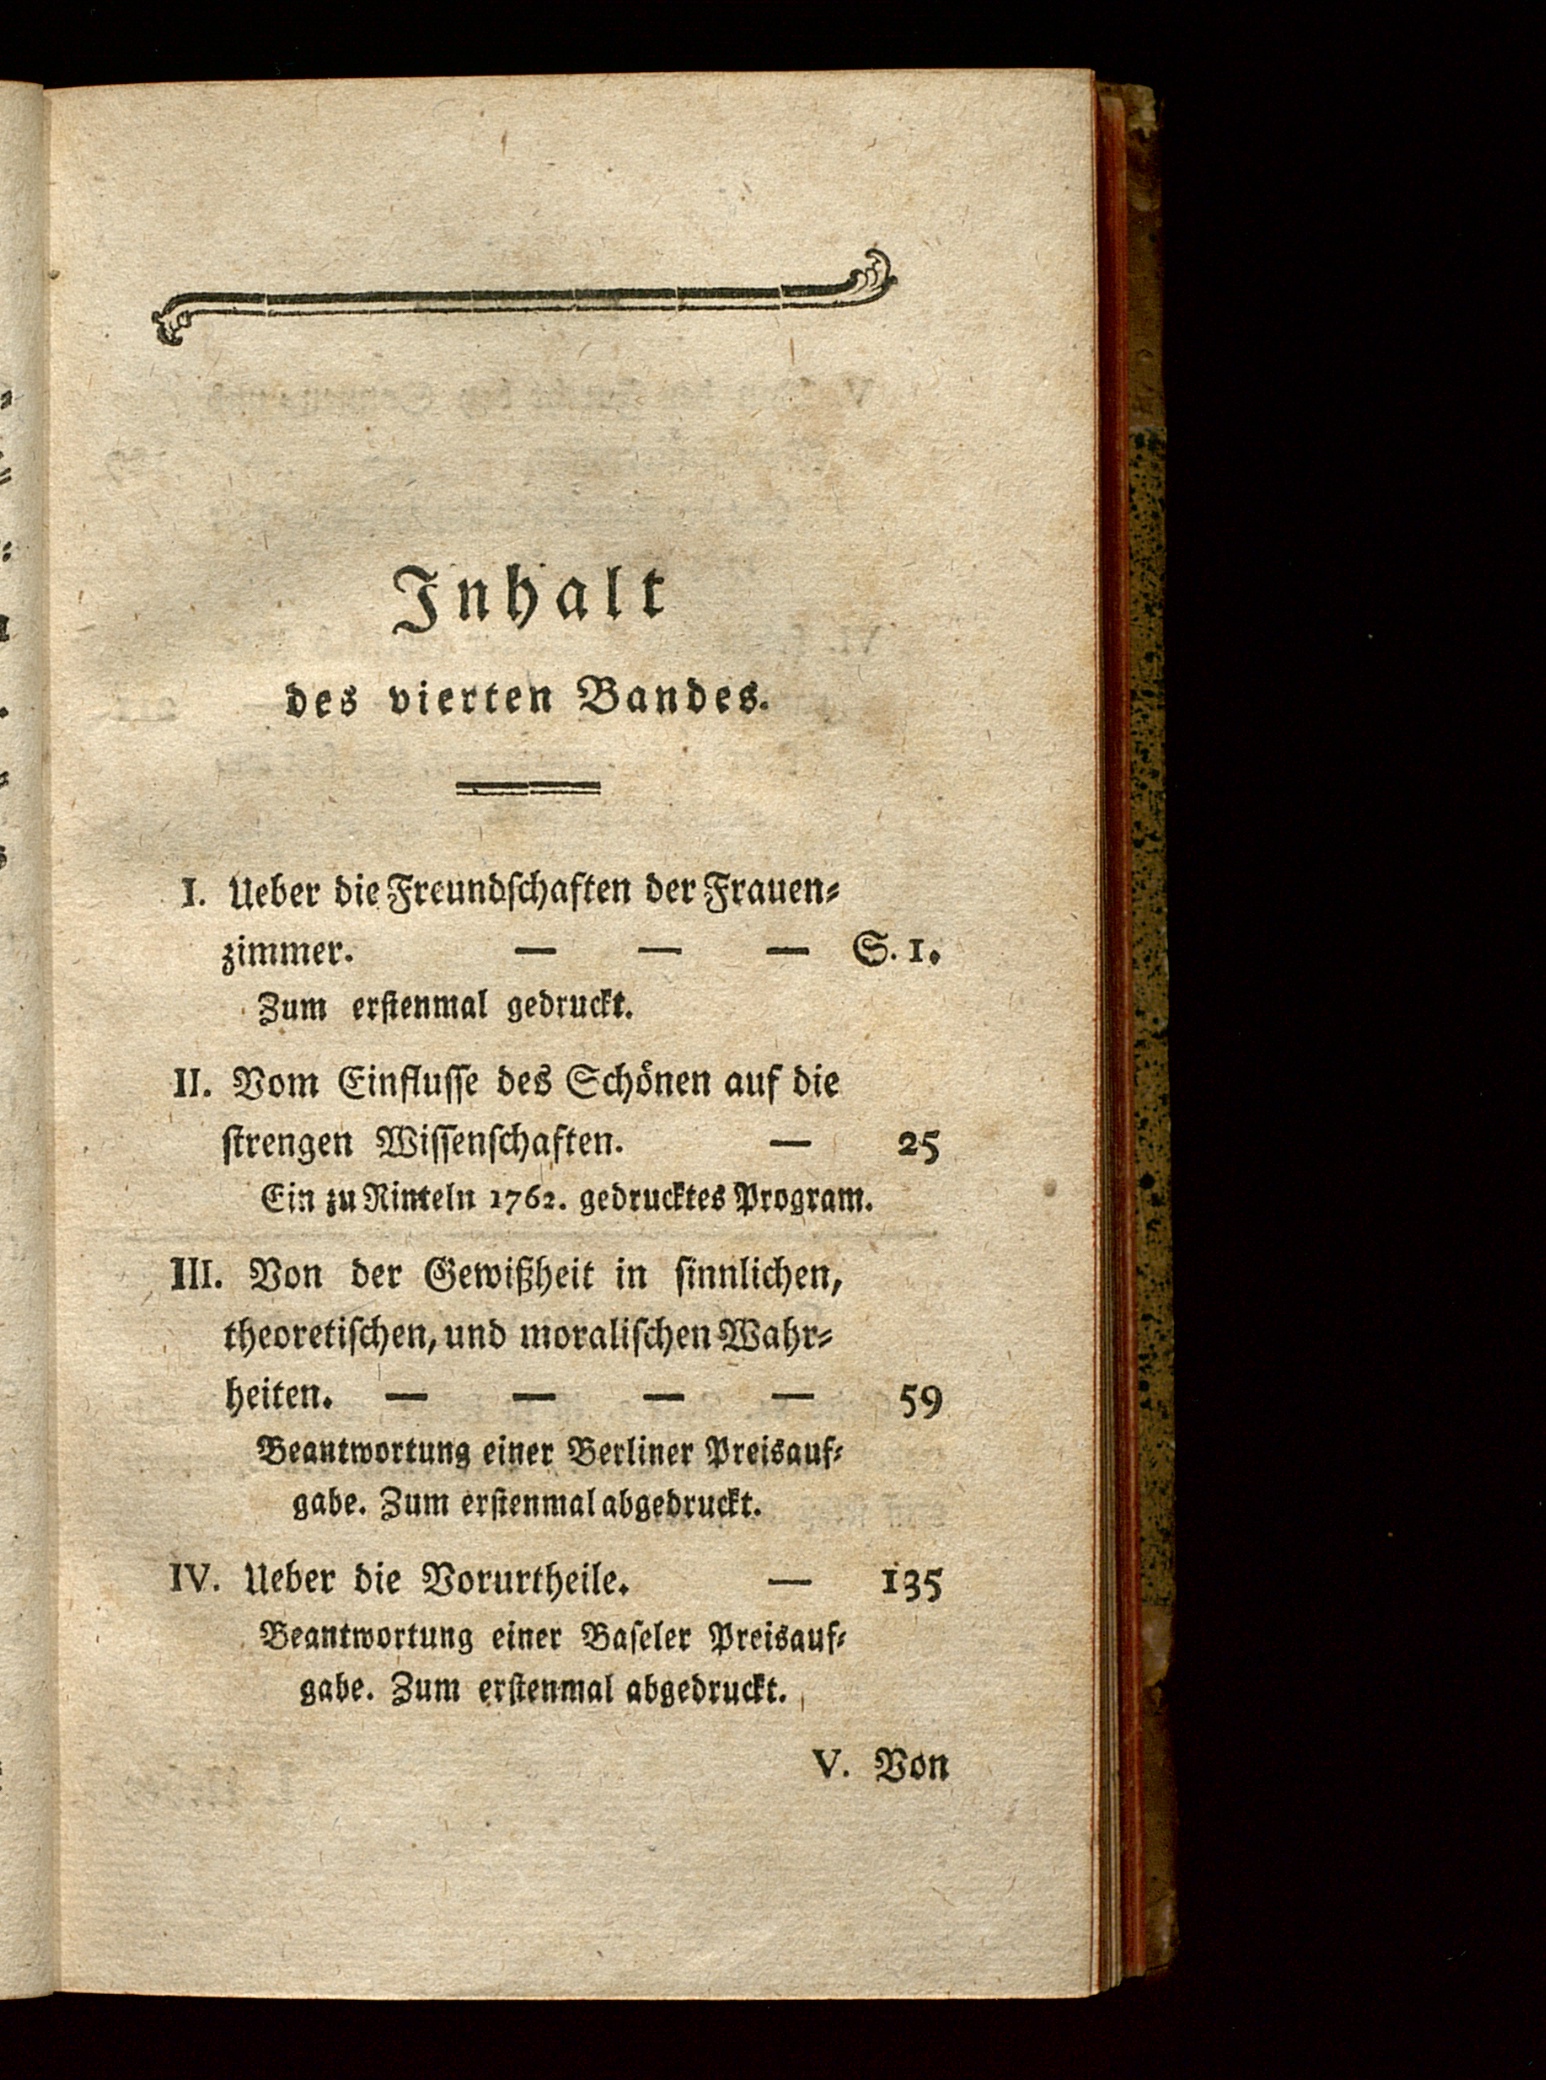 Inhalt
des vierten Bandes.
I. Ueber die Freundſchaften der Frauen⸗
zimmer. — — — S. 1.
Zum erſtenmal gedruckt.
II. Vom Einfluſſe des Schönen auf die
ſtrengen Wiſſenſchaften. — 25
Ein zu Rinteln 1762. gedrucktes Program.
III. Von der Gewißheit in ſinnlichen,
theoretiſchen, und moraliſchen Wahr⸗
heiten. — — — — 59
Beantwortung einer Berliner Preisauf⸗
gabe. Zum erſtenmal abgedruckt.
IV. Ueber die Vorurtheile. — 135
Beantwortung einer Baſeler Preisauf⸗
gabe. Zum erſtenmal abgedruckt.
V. Von